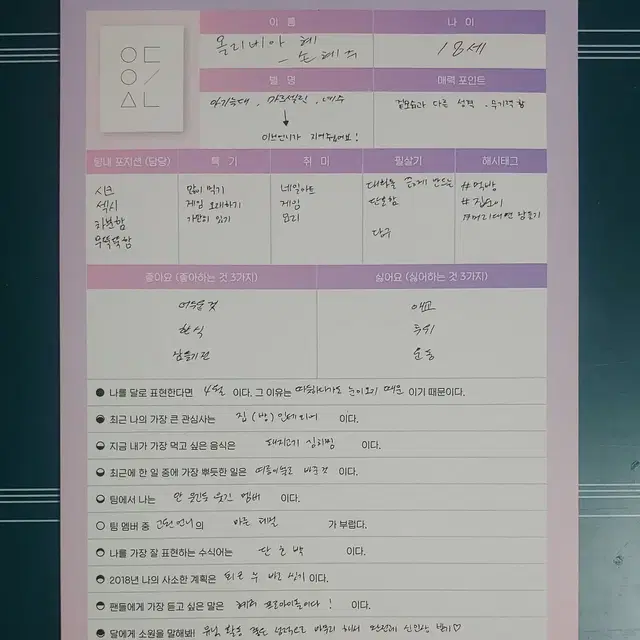 이름
나이
올리비아 혜
- 손혜주
18세
별명
매력 포인트
아기늑대, 마르셀린, 녜주
이브언니가 지어주심여보!
겉모습과 다른 성격, 무기력함
팀내 포지션 (담당)
특기
취미
필살기
해시태그
시크
섹시
차분함
무뚝뚝함
많이 먹기
게임 오래하기
가만히 있기
네일아트
게임
요리
대화를 끊게 만드는
단호함
당구
#먹방
#집순이
#머리대면 잠들기
좋아요 (좋아하는 것 3가지)
싫어요 (싫어하는 것 3가지)
귀여운 것
한식
잠들기 전
애교
추위
운동
나를 달로 표현한다면 4월 이다. 그 이유는 따뜻하다가도 눈이 오기 때문 이기 때문이다.
최근 나의 가장 큰 관심사는 집 (방) 인테리어 이다.
지금 내가 가장 먹고 싶은 음식은 돼지고기 김치찜 이다.
최근에 한 일 중에 가장 뿌듯한 일은 여름이불로 바꾼 것 이다.
팀에서 나는 안 웃긴데 웃긴 멤버 이다.
팀 멤버 중 고원언니 의 마른 체형 가 부럽다.
나를 가장 잘 표현하는 수식어는 단호박 이다.
2018년 나의 사소한 계획은 피로 누적 안 쌓기 이다.
팬들에게 가장 듣고 싶은 말은 혜주 프로아이돌이다! 이다.
달에게 소원을 말해봐! 유닛 활동 좋은 성적으로 마무리 해서 완전체 신인상 받기♡